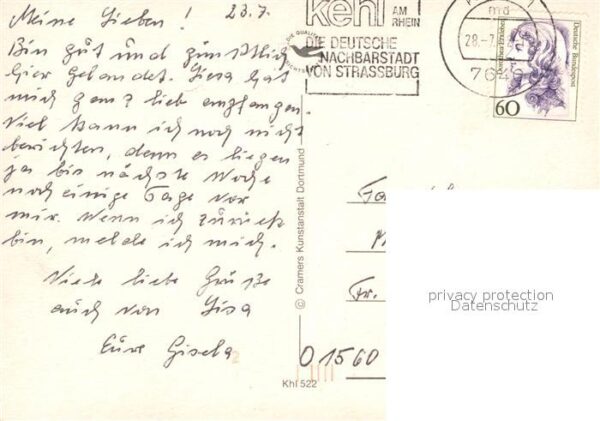 Meine Lieben! 23.7.
Bin gut und pünktlich
hier gelandet. Lisa hat
mich ganz lieb empfangen.
Viel kann ich noch nicht
berichten, denn es liegen
ja bis nächste Woche
noch einige Tage vor
mir. Wenn ich zurück
bin, melde ich mich.
Viele liebe Grüße
auch von Lisa
Eure Gisela
kehl AM
RHEIN
DIE DEUTSCHE
NACHBARSTADT
VON STRASSBURG
28.-7.
7640
Deutsche Bundespost
60
© Cramers Kunstanstalt Dortmund
Khl 522
Fa
Fr.
O 1560
privacy protection
Datenschutz